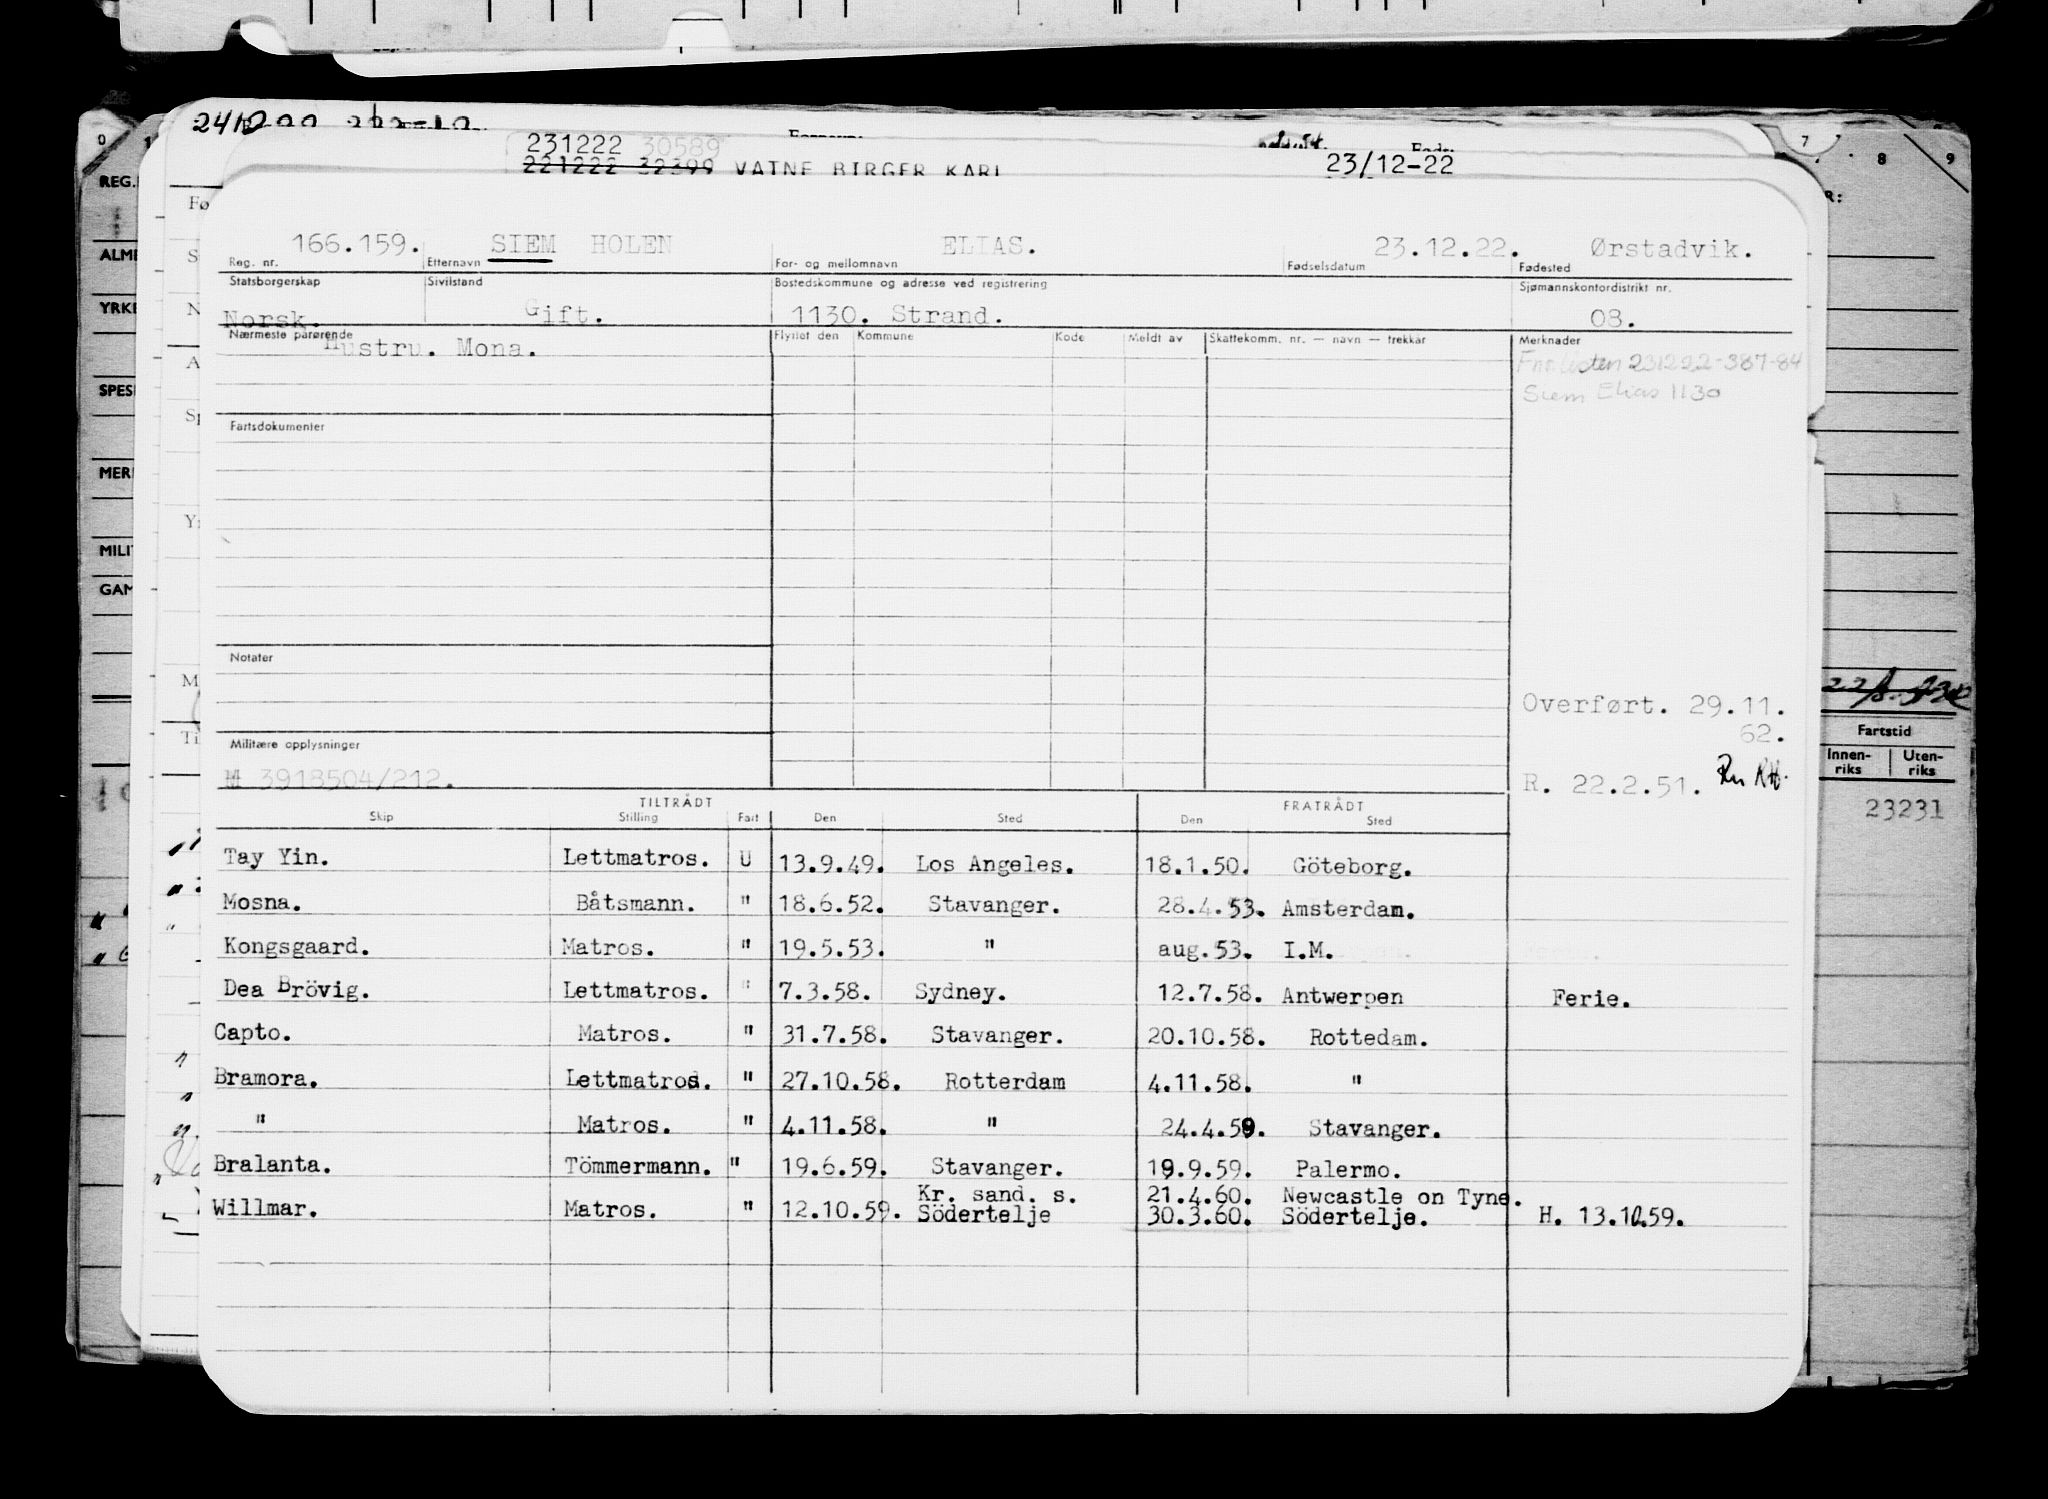 231222 30589
221222 32399 VATNE BIRGER KARL 23/12-22
166.159. SIEM HOLEN ELIAS. 23.12.22. Ørstadvik.
Reg. nr. Etternavn For- og mellomnavn Fødselsdatum Fødested
Statsborgerskap Sivilstand Bostedskommune og adresse ved registrering Sjømannskontordistrikt nr.
Norsk. Gift. 1130. Strand. 08.
Nærmeste pårørende Flyttet den Kommune Kode Meldt av Skattekomm. nr. — navn — trekkår Merknader
Hustru. Mona.
Fnr. listen 231222-387-84
Siem Elias 1130
Fartsdokumenter
Notater
Overført. 29.11.
62.
Militære opplysninger
M 3918504/212.
R. 22.2.51.
TILTRÅDT FRATRÅDT
Skip Stilling Fart Den Sted Den Sted
Tay Yin. Lettmatros. U 13.9.49. Los Angeles. 18.1.50. Göteborg.
Mosna. Båtsmann. " 18.6.52. Stavanger. 28.4.53. Amsterdam.
Kongsgaard. Matros. " 19.5.53. " aug.53. I.M.
Dea Brövig. Lettmatros. " 7.3.58. Sydney. 12.7.58. Antwerpen Ferie.
Capto. Matros. " 31.7.58. Stavanger. 20.10.58. Rottedam.
Bramora. Lettmatros. " 27.10.58. Rotterdam 4.11.58. "
" Matros. " 4.11.58. " 24.4.59. Stavanger.
Bralanta. Tömmermann. " 19.6.59. Stavanger. 19.9.59. Palermo.
Kr. sand. s. 21.4.60. Newcastle on Tyne.
Willmar. Matros. " 12.10.59. Södertelje 30.3.60. Södertelje. H. 13.10.59.
0 7 8 9
REG.
ALME
YRKE
SPESI
MERI
MILIT
GAM
Fartstid
Innen-riks Uten-riks
23231